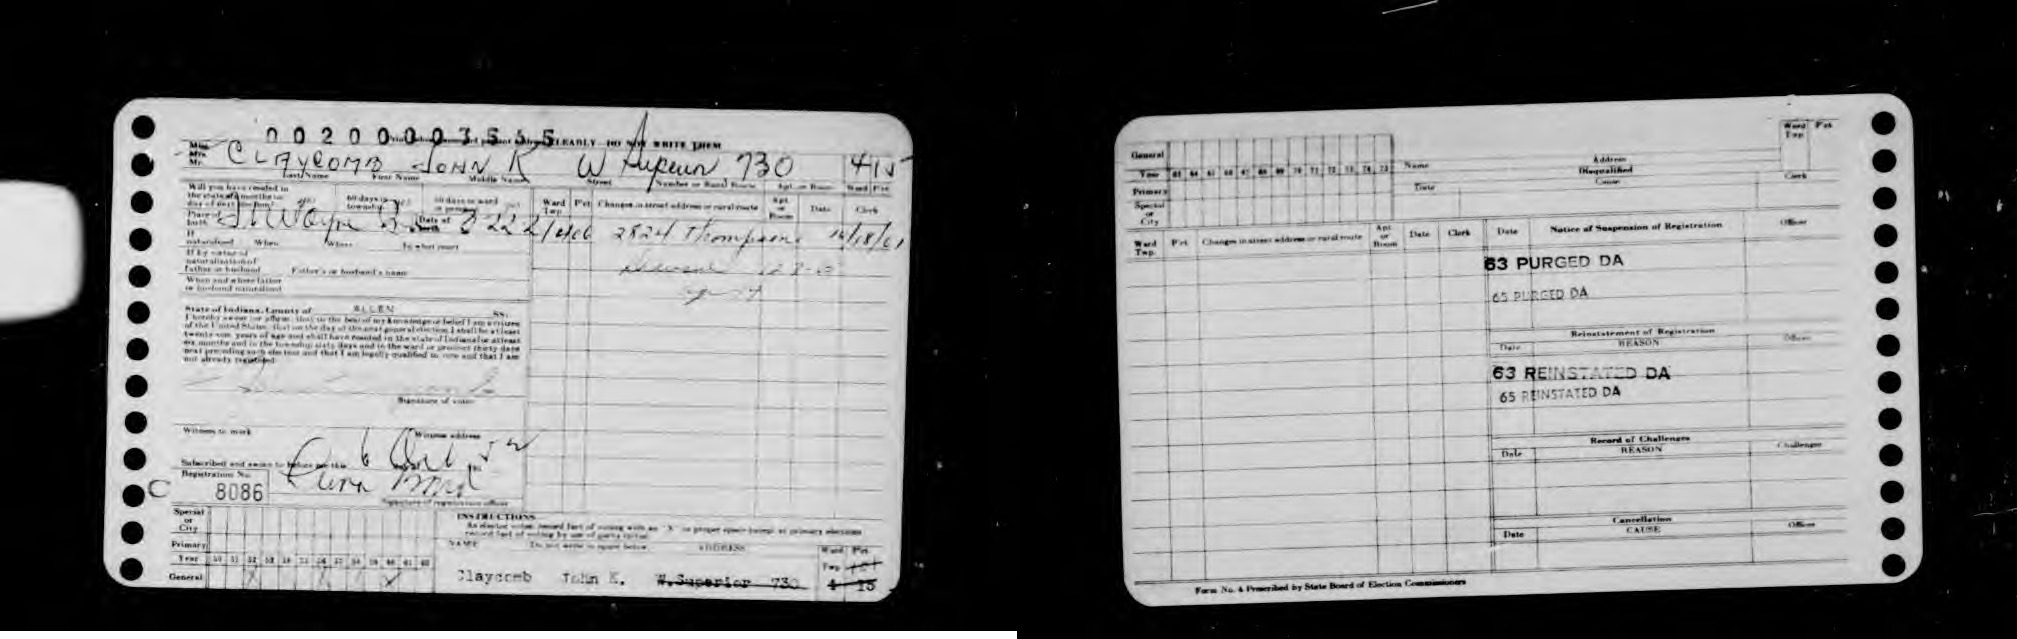 00200003555
CLEARLY DO NOT WRITE THEM
Miss
Mrs.
Mr. CLAYCOMB JOHN K W Superior 730 4 15
Last Name First Name Middle Name Street Number or Rural Route Apt. or Room Ward Pct.
Will you have resided in
the state of 6 months to
day of next election? yes 60 days in township yes 30 days in ward or precinct yes
Place of birth Ft Wayne Date of birth
If naturalized When Where In what court
If by virtue of
naturalization of
father or husband Father's or husband's name
When and where father
or husband naturalized
Ward Twp. Pct. Changes in street address or rural route Apt. or Room Date Clerk
2824 Thompson
State of Indiana, County of ALLEN SS:
I hereby swear (or affirm) that to the best of my knowledge or belief I am a citizen
of the United States; that on the day of the next general election I shall be at least
twenty-one years of age and shall have resided in the state of Indiana for at least
six months and in the township sixty days and in the ward or precinct thirty days
next preceding such election and that I am legally qualified to vote and that I am
not already registered.
Signature of voter
Witness to mark Witness address
Subscribed and sworn to before me this 6 Oct 52
Registration No.
C 8086
Signature of registration officer
Special
or
City
Primary
Year 50 51 52 53 54 55 56 57 58 59 60 61 62
General X X X
INSTRUCTIONS
As elector votes record fact of voting with an "X" in proper space except at primary elections
record fact of voting by use of party initial.
NAME Do not write in space below. ADDRESS Ward Twp. Pct.
Claycomb John K. W. Superior 730 4 15
General
Year 63 64 65 66 67 68 69 70 71 72 73 74 75
Primary
Special
or
City
Name Address Ward Twp. Pct.
Disqualified
Date Cause Clerk
Ward Twp. Pct. Changes in street address or rural route Apt. or Room Date Clerk
Date Notice of Suspension of Registration Officer
63 PURGED DA
65 PURGED DA
Reinstatement of Registration
Date REASON Officer
63 REINSTATED DA
65 REINSTATED DA
Record of Challenges
Date REASON Challenger
Cancellation
Date CAUSE Officer
Form No. 4 Prescribed by State Board of Election Commissioners